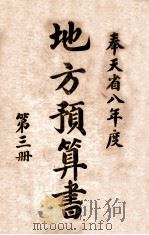 奉天省八年度
地方預算書
第三册